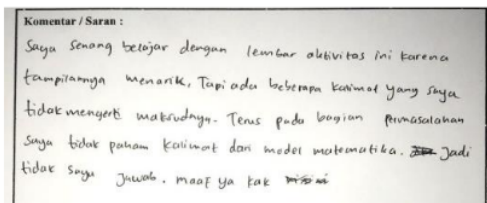 Komentar / Saran :
Saya senang belajar dengan lembar aktivitas ini karena
tampilannya menarik, Tapi ada beberapa kalimat yang saya
tidak mengerti maksudnya. Terus pada bagian permasalahan
saya tidak paham kalimat dari model matematika. Jadi
tidak saya jawab. maaf ya kak